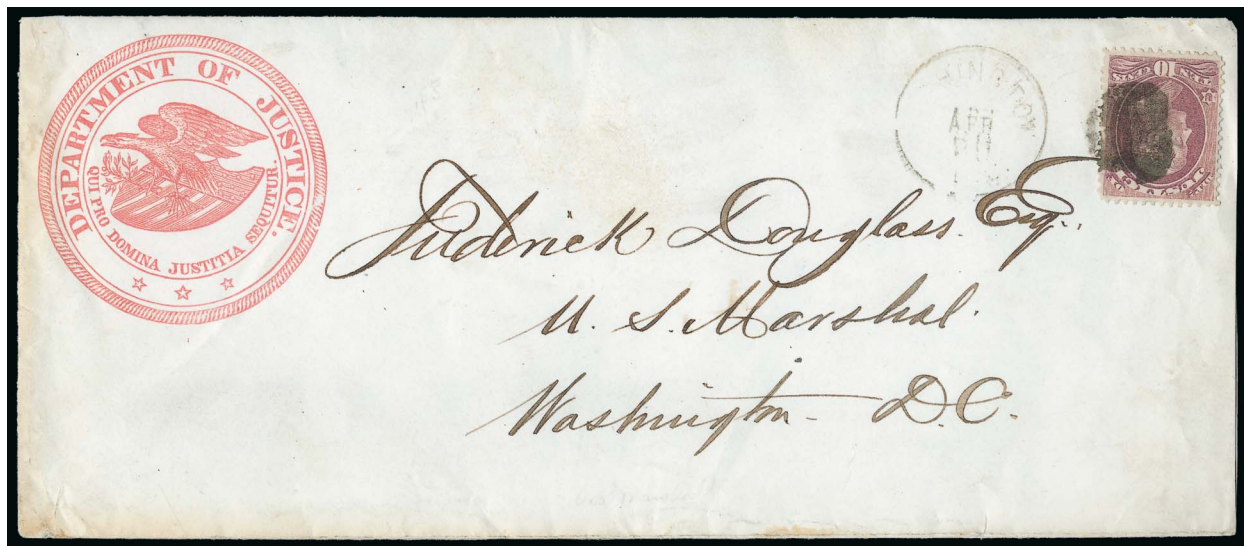 DEPARTMENT OF JUSTICE.
QUI PRO DOMINA JUSTITIA SEQUITUR.
HINGTON
APR
10
Frederick Douglass. Esq.,
U. S. Marshal.
Washington D.C.